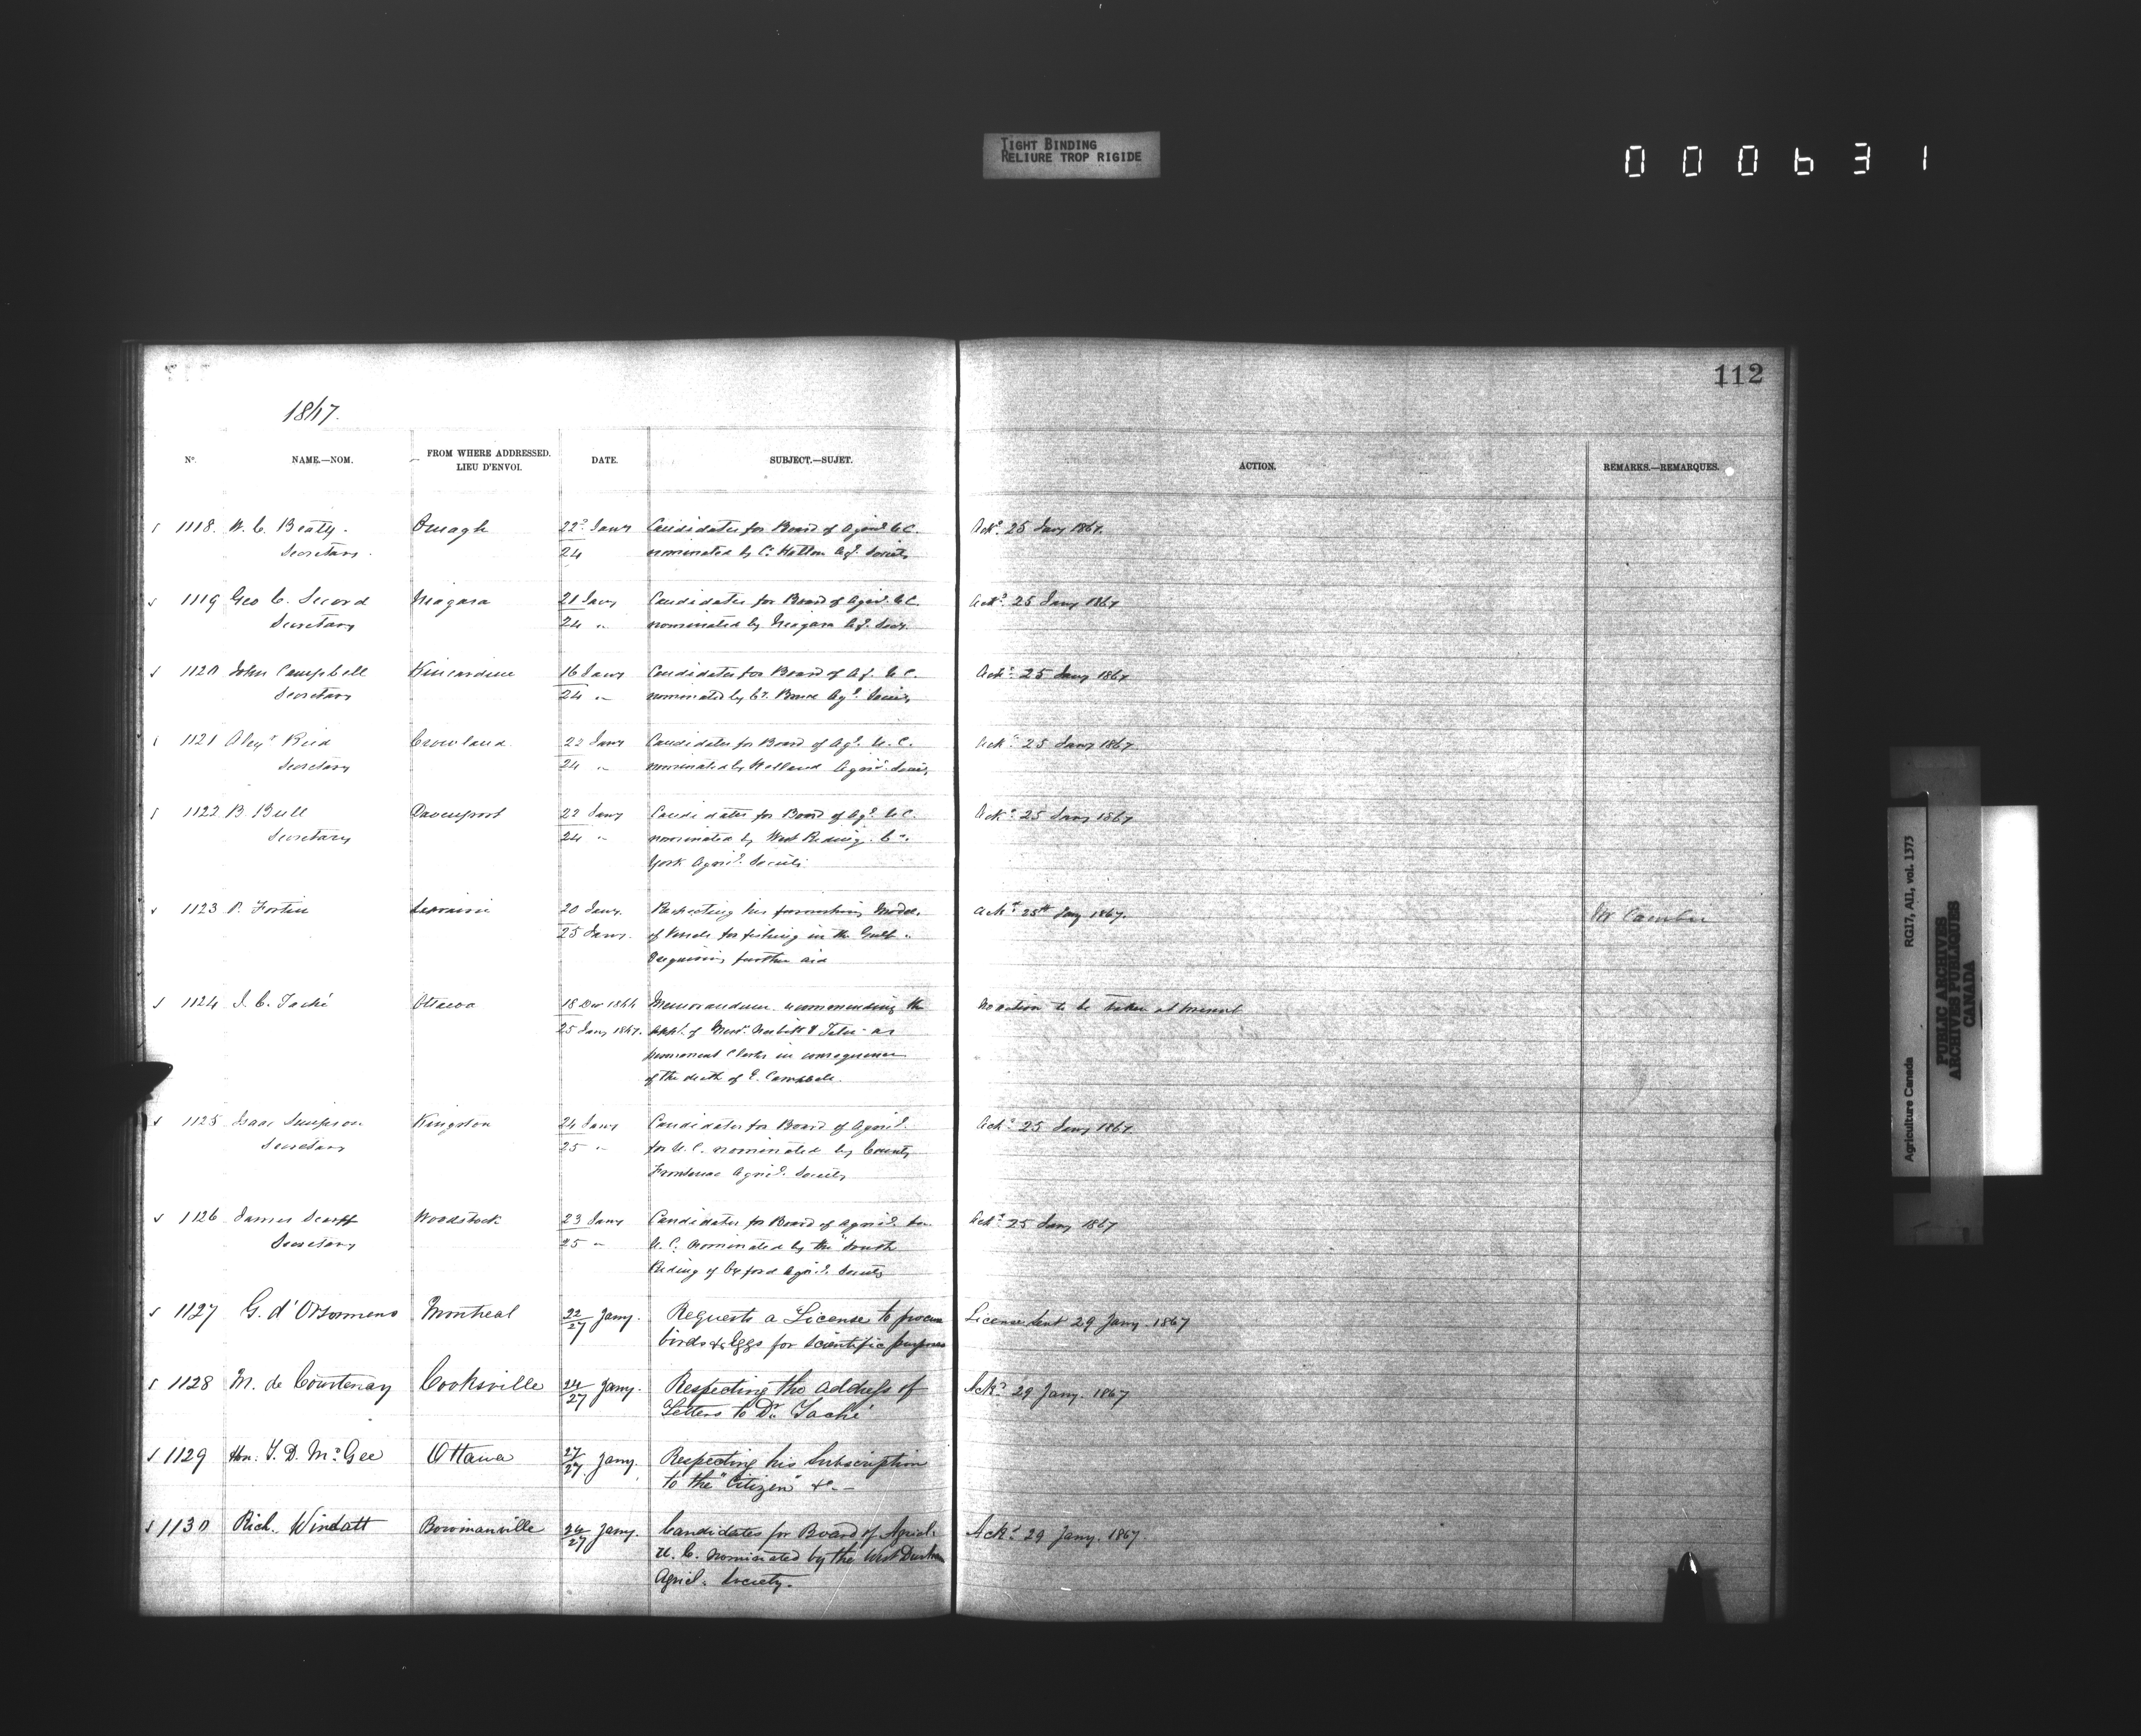 TIGHT BINDING
RELIURE TROP RIGIDE
000631
112
1867.
No. NAME.—NOM. FROM WHERE ADDRESSED. LIEU D'ENVOI. DATE. SUBJECT.—SUJET. ACTION. REMARKS.—REMARQUES.
1118. W. C. Beaty. Omagh 22d Jany Candidates for Board of Agricl. U.C. Ackd 25 Jany 1867.
Secretary. 24 nominated by Co. Halton Agl. Society
1119 Geo C. Secord Niagara 21 Jany Candidates for Board of Agricl. U.C. Ackd 25 Jany 1867
Secretary 24 " nominated by Niagara Agl. Socy.
1120 John Campbell Kincardine 16 Jany Candidates for Board of Ag. U.C. Ackd 25 Jany 1867
Secretary 24 " nominated by Co. Bruce Agl. Society
1121 Alexr Reid Crowland 22 Jany Candidates for Board of Agl. U.C. Ackd 25 Jany 1867
Secretary 24 " nominated by Welland Agricl. Society
1122 B. Bull Davenport 22 Jany Candidates for Board of Agl. U.C. Ackd 25 Jany 1867
Secretary 24 " nominated by West Riding Co.
York Agricl. Society
1123 P. Fortin Laprairie 20 Jany. Respecting his furnishing Model Ackd 25th Jany 1867.
25 Jany. of Vessels for fishing in the Gulf
Requiring further aid
1124 J. C. Taché Ottawa 18 Dec 1866 Memorandum recommending the No action to be taken at present
25 Jany 1867. appt. of Messrs. Nesbitt & Tetu as
permanent Clerks in consequence
of the death of E. Campbell.
1125 Isaac Simpson Kingston 24 Jany Candidates for Board of Agricl. Ackd 25 Jany 1867
Secretary 25 " for U.C. nominated by County
Frontenac Agricl. Society
1126 James Scarff Woodstock 23 Jany Candidates for Board of Agricl. for Ackd 25 Jany 1867
Secretary 25 " U.C. nominated by the South
Riding of Oxford Agricl. Society
1127 G. d'Orsonnens Montreal 22/27 Jany. Requests a License to procure License sent 29 Jany 1867
birds & Eggs for scientific purposes
1128 M. de Courtenay Cooksville 24/27 Jany. Respecting the address of Ackd 29 Jany. 1867
Letters to Dr. Taché
1129 Hon: T. D. McGee Ottawa 27/27 Jany. Respecting his Subscription
to the "Citizen" &c.—
1130 Rich. Windatt Bowmanville 26/27 Jany. Candidates for Board of Agricl. Ackd 29 Jany. 1867.
U. C. nominated by the West Durham
Agricl. Society.
Agriculture Canada RG17, AII, vol. 1373
PUBLIC ARCHIVES
ARCHIVES PUBLIQUES
CANADA